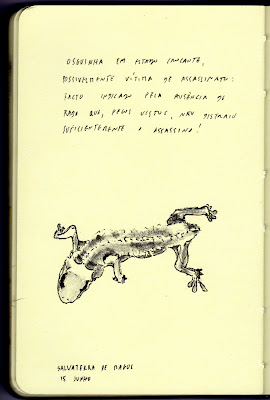 OSGUINHA EM ESTADO
POSSIVELMENTE VÍTIMA DE ASSASSINATO:
FACTO INDICADO PELA AUSÊNCIA DE
RABO QUE, PELOS VISTOS, NÃO DISTRAIU
SUFICIENTEMENTE O ASSASSINO!
SALVATERRA DE MAGOS
15 JUNHO